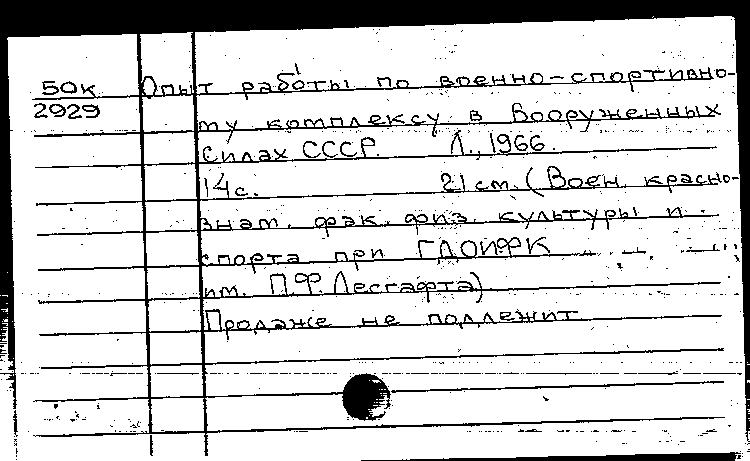 50к Опыт работы по военно-спортивно-
2929 му комплексу в Вооруженных
Силах СССР. Л., 1966.
14с. 21см. (Воен. красно-
знам. фак. физ. культуры и
спорта при ГДОИФК
им. П.Ф. Лесгафта)
Продаже не подлежит